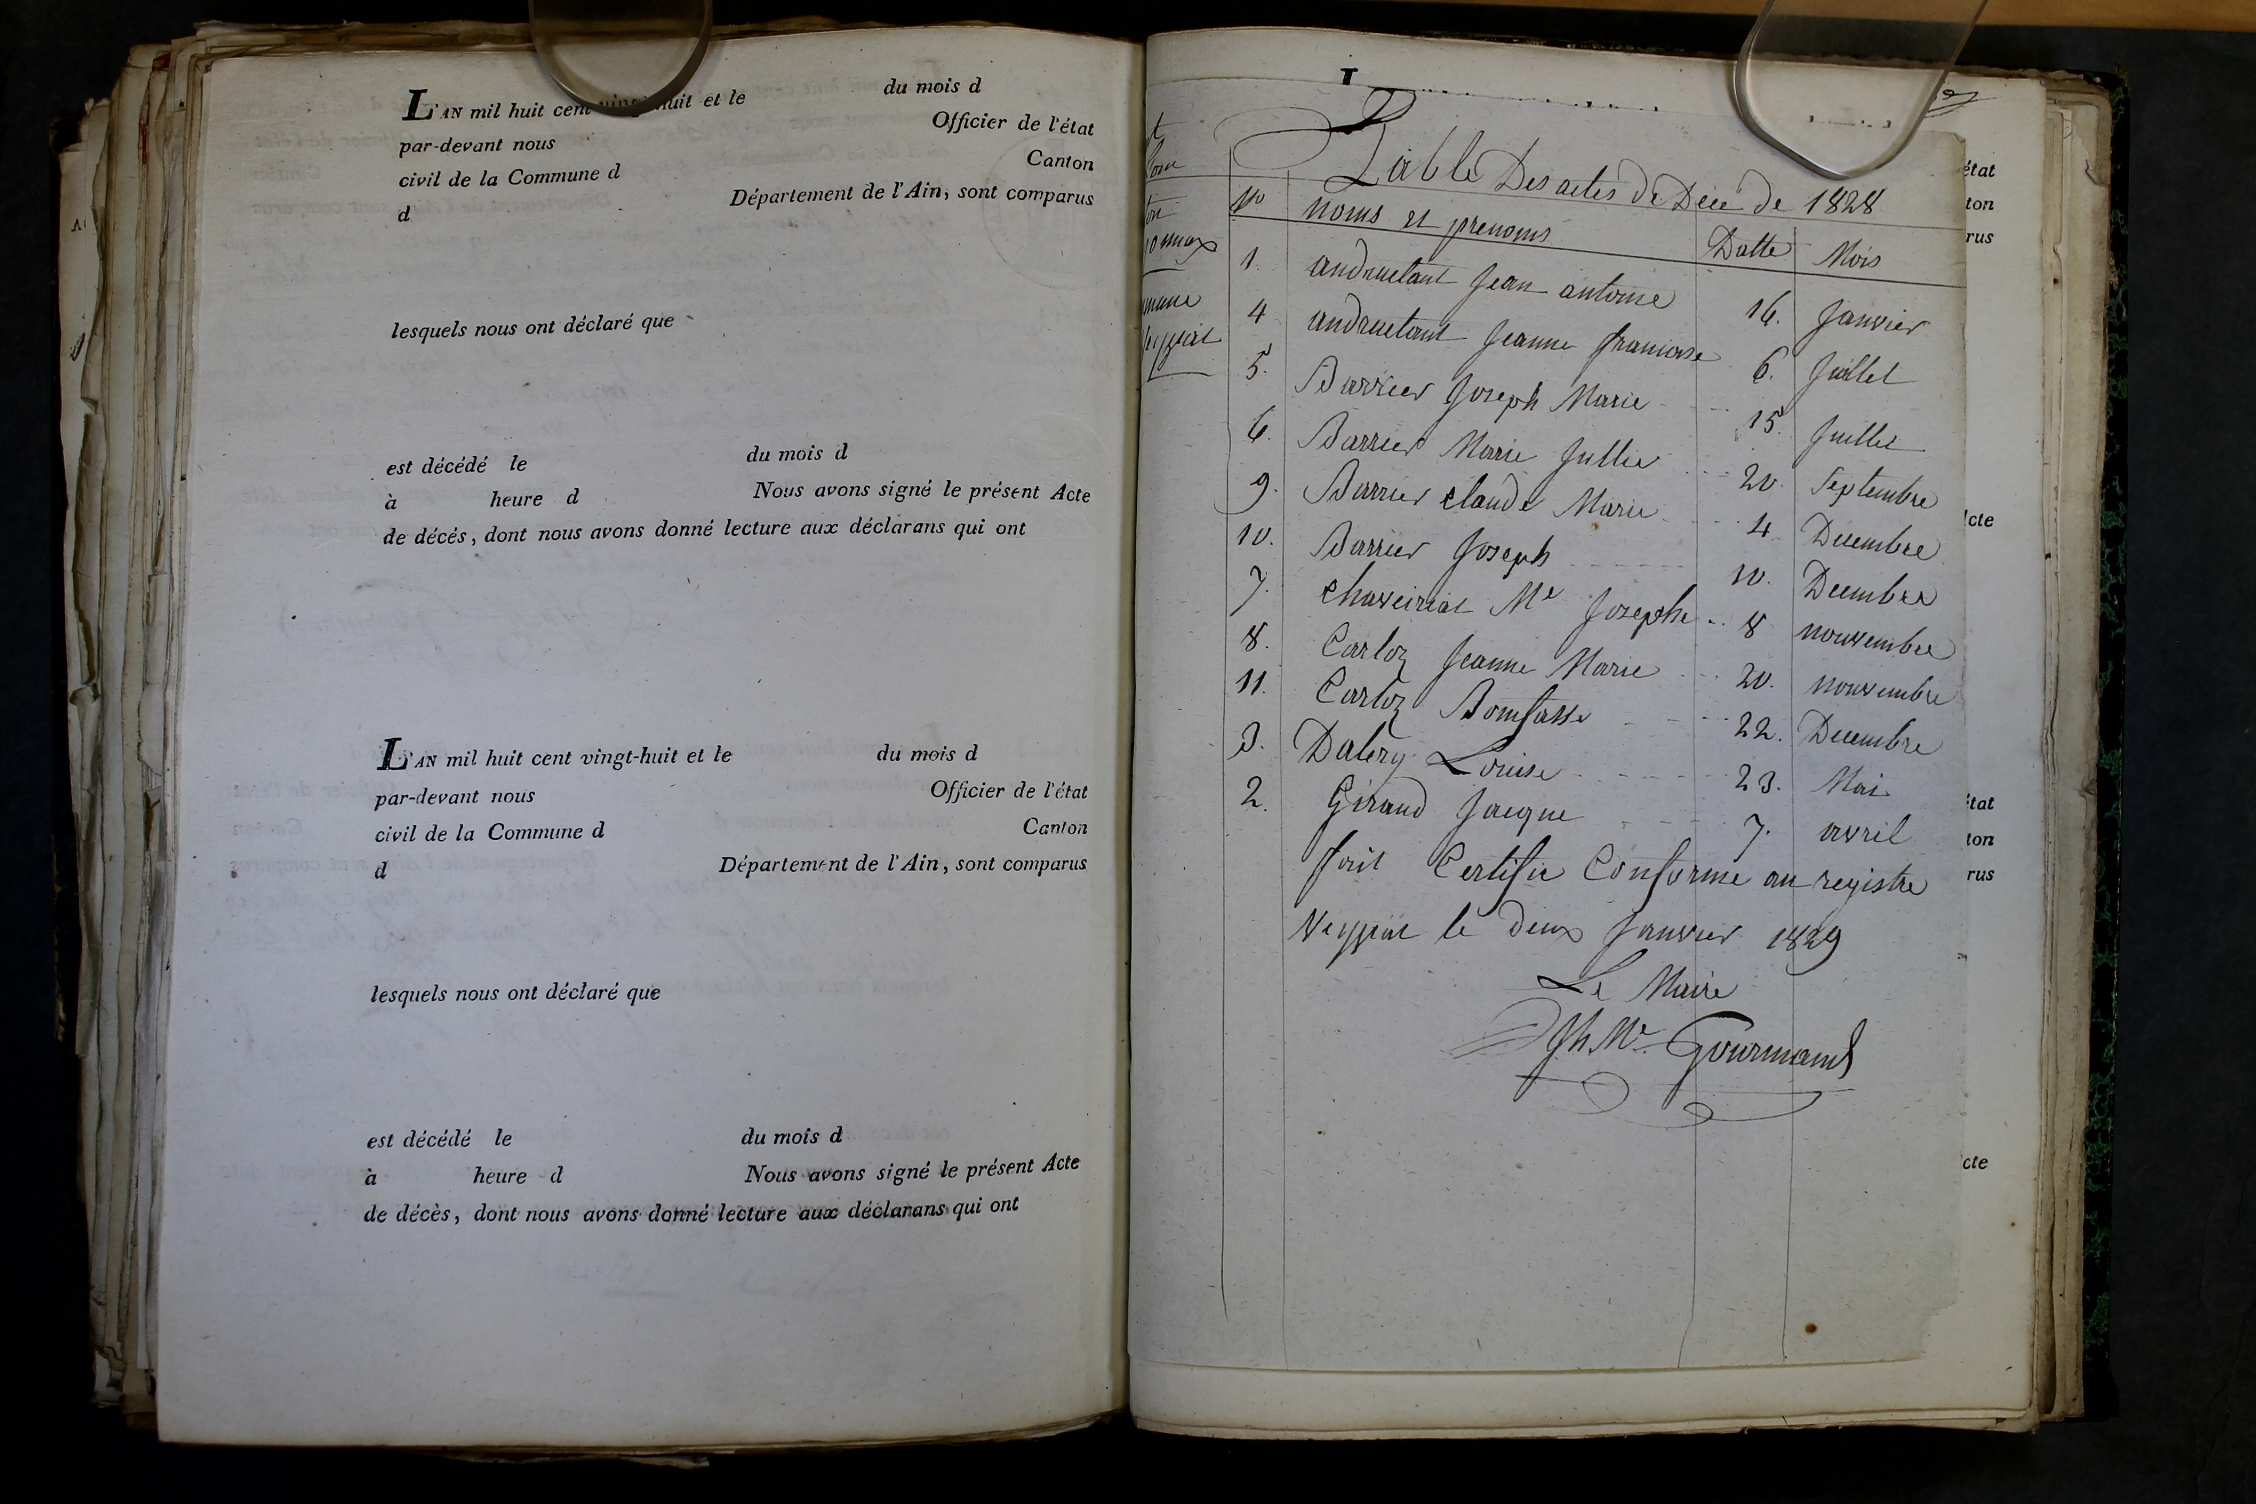 L'AN mil huit cent vingt-huit et le du mois d
par-devant nous Officier de l'état
civil de la Commune d Canton
d Département de l'Ain, sont comparus
lesquels nous ont déclaré que
est décédé le du mois d
à heure d Nous avons signé le présent Acte
de décés, dont nous avons donné lecture aux déclarans qui ont
L'AN mil huit cent vingt-huit et le du mois d
par-devant nous Officier de l'état
civil de la Commune d Canton
d Département de l'Ain, sont comparus
lesquels nous ont déclaré que
est décédé le du mois d
à heure d Nous avons signé le présent Acte
de décès, dont nous avons donné lecture aux déclarans qui ont
Table Des actes de Décé de 1828
No noms et prenoms Datte Mois
1. andruetant Jean antoine 16. Janvier
4 andruetant Jeanne francoise 6. Juillet
5. Barrier Joseph Marie 15 Juillet
6. Barrier Marie Jullie 20. Septembre
9. Barrier claude Marie 4 Decembre
10. Barrier Joseph 10. Decembre
7. chaveiriat Me Josephe 8 nouvembre
8. Carloz Jeanne Marie 20. nouvembre
11. Carloz Bonifasse 22. Decembre
3. Dalery Louise 23. Mai
2. Girand Jacque 7. avril
fait Certifie Conforme au registre
Veyziat le deux Janvier 1829
Le Maire
Jh Me. Gourmand
état
ton
rus
Acte
état
ton
rus
cte